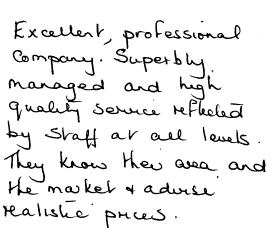 Excellent, professional
Company. Superbly
managed and high
quality service reflected
by staff at all levels.
They know their area and
the market & advise
realistic prices.